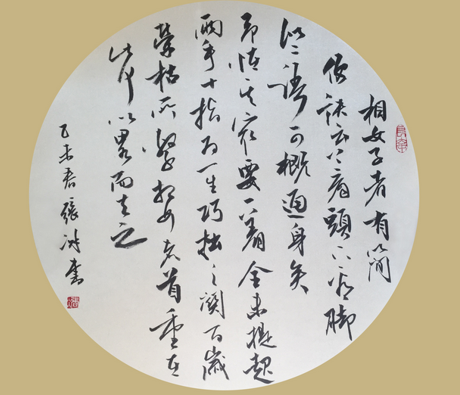 相女子者有簡
便訣云上看頭下看脚
似二語可概通身矣
予恠其㝡要一着全未提起
兩手十指为一生巧拙之関百歲
榮枯所繫相女者首重在
此何以畧而去之
乙未春張書